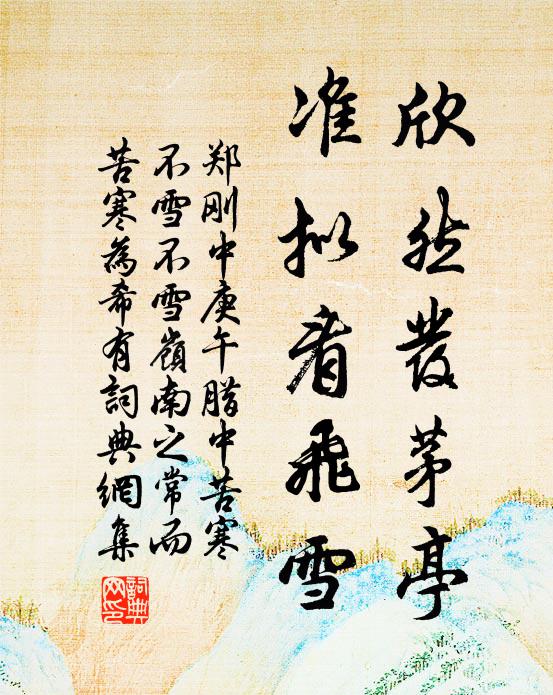 欣然發茅亭
准拟看飛雪
郑刚中庚午腊中苦寒
不雪不雪嶺南之常而
苦寒為希有詞典網集
詞典网印